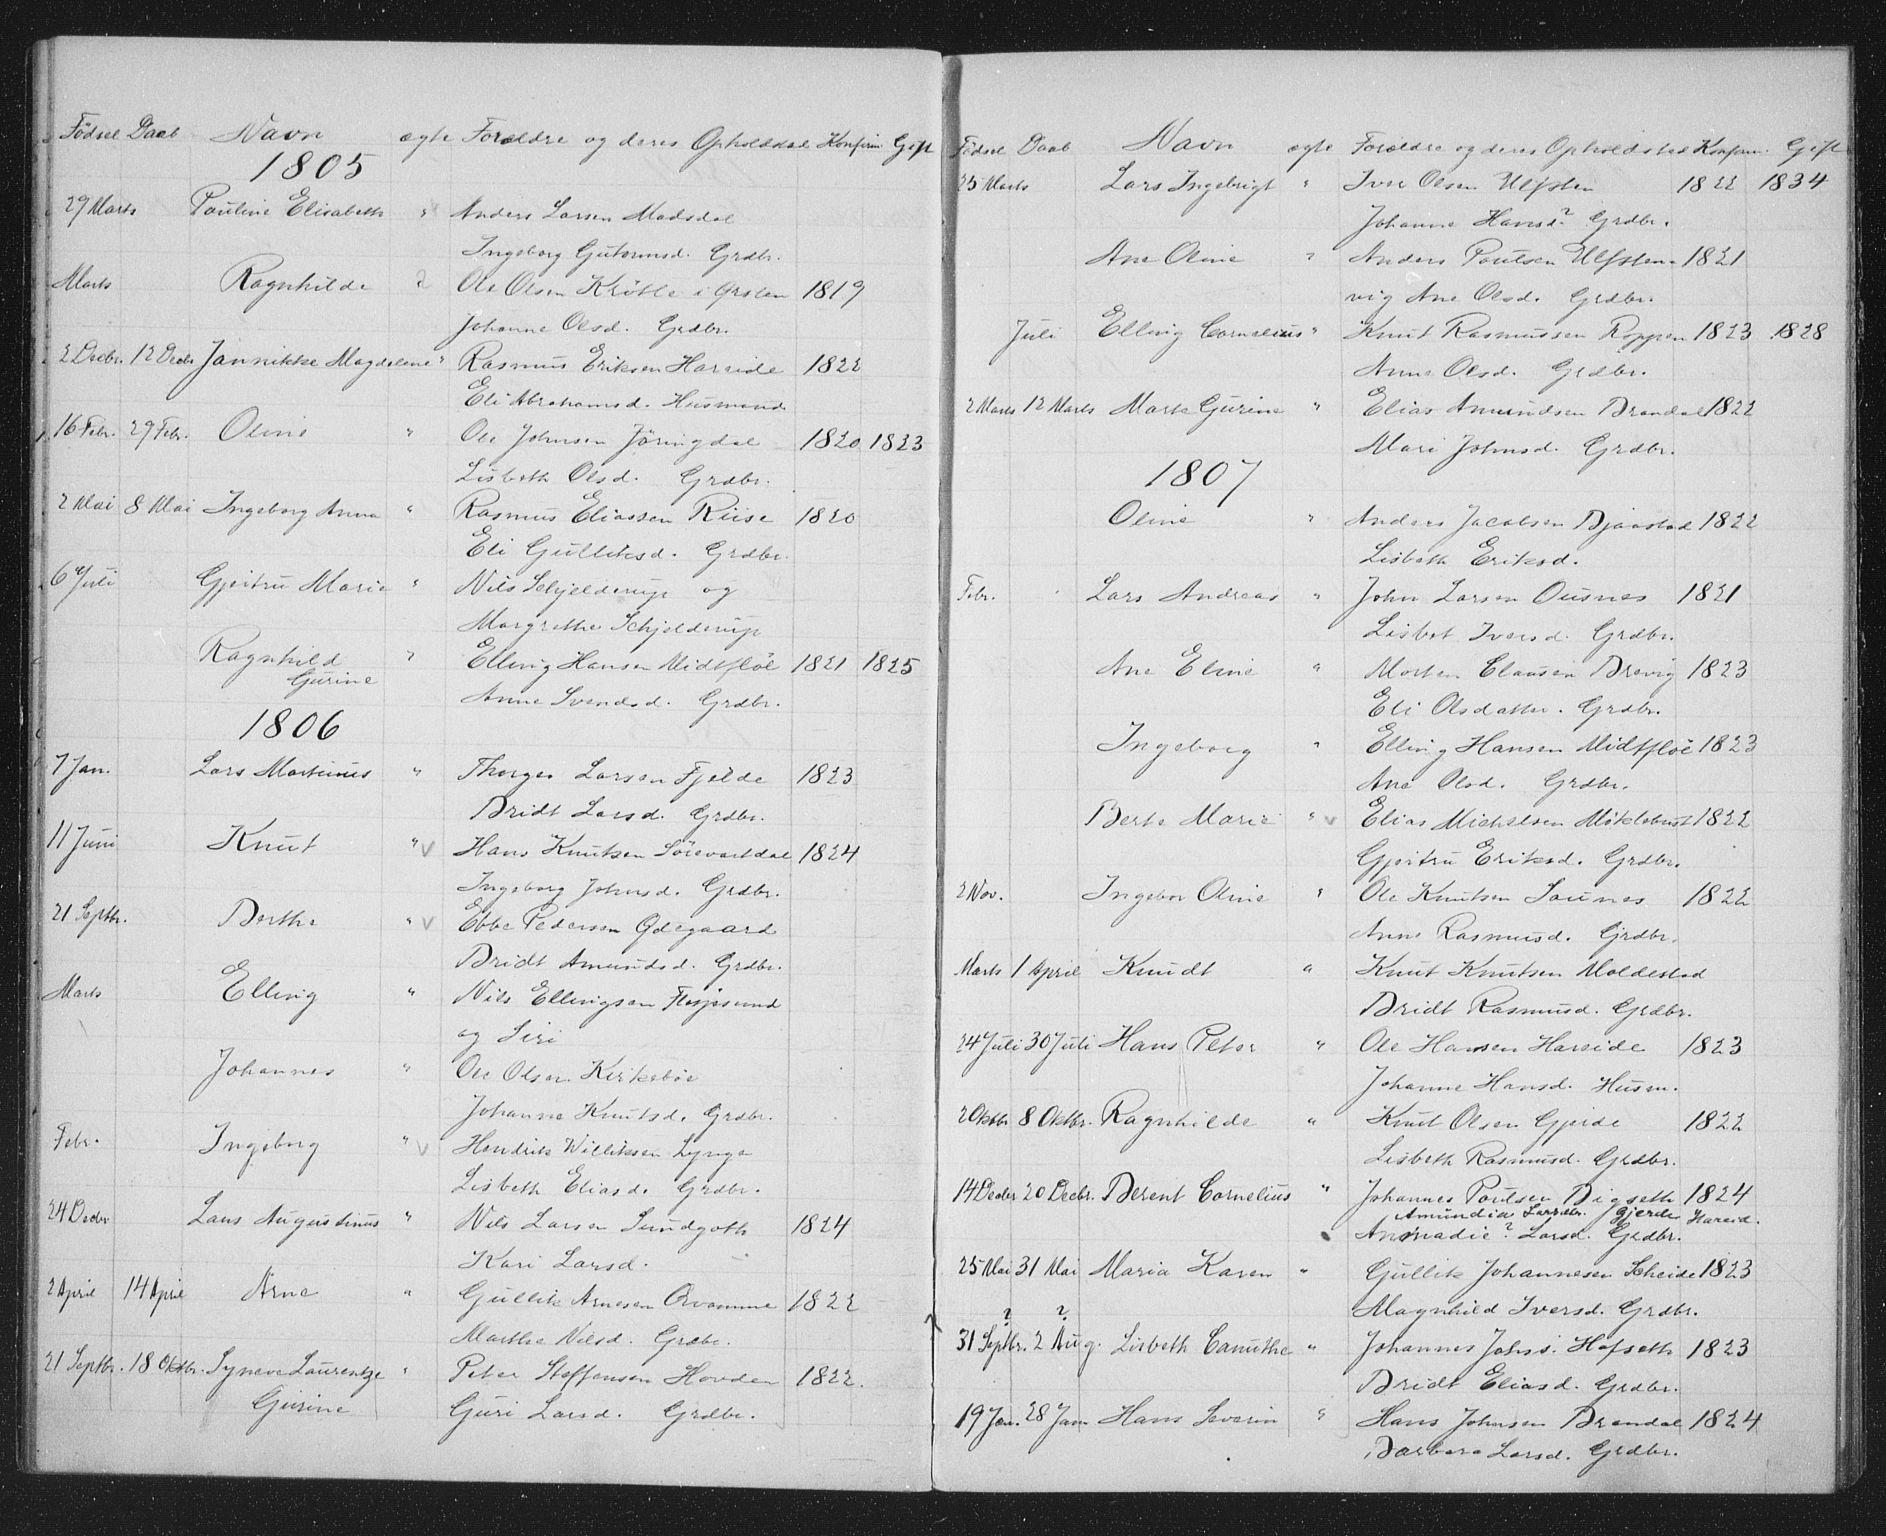 Fødsel Daab Navn ægte Forældre og deres Opholdsst. Konfirm. Gift
1805
29 Marts Pauline Elisabeth " Anders Larsen Madsdal
Ingeborg Gutormsd. Grdbr.
Marts Ragnhilde ? Ole Olsen Krövle i Ørsten 1819
Johanne Olsd. Grdbr.
2 Decbr. 12 Decbr Jannikke Magdalene " Rasmus Eriksen Hareide 1822
Eli Abrahamsd. Husmand
16 Febr. 29 Febr. Oline " Ole Johnsen Jöringdal 1820 1823
Lisbeth Olsd. Grdbr.
2 Mai 8 Mai Ingeborg Anna " Rasmus Eliassen Riise 1820
Eli Gulliksd. Grdbr.
6 Juli Gjertru Marie " Nils Schjelderup og
Margrethe Schjelderup
Ragnhild " Elling Hansen Midtflöe 1821 1825
Gurine
Anne Svendsd. Grdbr.
1806
7 Jan. Lars Martinus " Thorger Larsen Fjelde 1823
Bridt Larsd. Grdbr.
11 Juni Knut " v Hans Knutsen Sörevartdal 1824
Ingeborg Johnsd. Grdbr.
21 Septbr. Berthe " v Ebbe Pedersen Ødegaard
Bridt Amundsd. Grdbr.
Marts Elling " Nils Ellingsen Fløjsund
og Siri
Johannes " Ole Olsen Kirkeböe
Johanne Knutsd. Grdbr.
Febr. Ingeborg " v Hendrik Williksen Lynge
Lisbeth Eliasd. Grdbr.
24 Decbr Lars Augustinus " Nils Larsen Sundgoth 1824
Kari Larsd.
2 April 14 April Arne " Gullik Arnesen Overaamme 1822
Marthe Nilsd. Grdbr.
21 Septbr. 18 Oktbr. Synøve Laurentze " Peter Steffensen Hovden 1822.
Gurine Guri Larsd. Grdbr.
Fødsel Daab Navn ægte Forældre og deres Opholdsted Konfirm. Gift
25 Marts Lars Ingebrigt " Iver Olsen Ulfsten 1822 1834
Johanne Hansd? Grdbr.
Ane Oline " Anders Poulsen Ulfsten- 1821
vig Ane Olsd. Grdbr.
Juli Elling Cornelius " Knut Rasmussen Roppen 1823 1828
Anne Olsd. Grdbr.
2 Marts 12 Marts Marte Gurine " Elias Amundsen Brandal 1822
Mari Johnsd. Grdbr.
1807
Oline " Anders Jacobsen Bjaastad 1822
Lisbeth Eriksd.
Febr. Lars Andreas " John Larsen Ousnes 1821
Lisbet Iversd. Grdbr.
Ane Eline " Morten Clausen Brevig 1823
Eli Olsdatter. Grdbr.
Ingeborg " Elling Hansen Midtflöe 1823
Ane Olsd. Grdbr.
Berte Marie " v Elias Michelsen Möklebust 1822
Gjertru Eriksd. Grdbr.
2 Nov. Ingebor Oline " Ole Knutsen Saunes 1822
Anne Rasmusd. Grdbr.
Marts 1 April Knudt " Knut Knutsen Moldestad
Bridt Rasmusd. Grdbr.
24 Juli 30 Juli Hans Peter " Ole Hansen Hareide 1823
Johanne Hansd. Husm.
2 Oktbr 8 Oktbr. Ragnhilde " Knut Olsen Gjerde 1822
Lisbeth Rasmusd. Grdbr.
14 Decbr 20 Decbr. Berent Cornelius " Johannes Poulsen Bigseth 1824
Amundia Larsdtr. / Gjerde, Hareid.
Annadie? Larsd. Grdbr.
25 Mai 31 Mai Maria Karen " Gullik Johannesen Scheide 1823
Magnhild Iversd. Grdbr.
? ?
31 Septbr. 2 Aug. Lisbeth Canuthe " Johannes Johs. Hofseth 1823
Bridt Eliasd. Grdbr.
19 Jan. 28 Jan Hans Severin " Hans Johnsen Brandal 1824
Barbara Larsd. Grdbr.